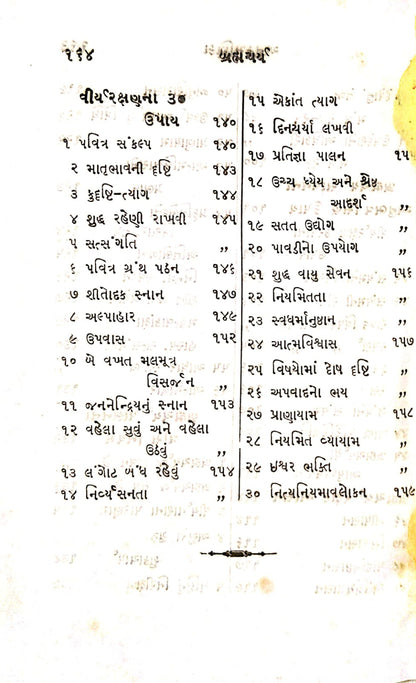 ૧૬૪
બ્રહ્મચર્ય
વીર્યરક્ષણના ૩૦
ઉપાય ૧૪૦
૧ પવિત્ર સંકલ્પ ૧૪૦
૨ માતૃભાવની દૃષ્ટિ ૧૪૩
૩ કુદૃષ્ટિ-ત્યાગ ૧૪૪
૪ શુદ્ધ રહેણી રાખવી ૧૪૫
૫ સત્સંગતિ „
૬ પવિત્ર ગ્રંથ પઠન ૧૪૬
૭ શીતોદક સ્નાન ૧૪૭
૮ અલ્પાહાર ૧૪૯
૯ ઉપવાસ ૧૫૨
૧૦ બે વખત મલમૂત્ર
વિસર્જન „
૧૧ જનનેન્દ્રિયનું સ્નાન ૧૫૩
૧૨ વહેલા સુવું અને વહેલા
ઉઠવું „
૧૩ લંગોટ બંધ રહેવું ૧૫૪
૧૪ નિર્વ્યસનતા „
૧૫ એકાંત ત્યાગ
૧૬ દિનચર્યા લખવી
૧૭ પ્રતિજ્ઞા પાલન ૧૫
૧૮ ઉચ્ચ ધ્યેય અને શ્રેષ્ઠ
આદર્શ „
૧૯ સતત ઉદ્યોગ „
૨૦ પાવડીનો ઉપયોગ „
૨૧ શુદ્ધ વાયુ સેવન ૧૫૬
૨૨ નિયમિતતા „
૨૩ સ્વધર્માનુષ્ઠાન „
૨૪ આત્મવિશ્વાસ ૧૫૭
૨૫ વિષયોમાં દોષ દૃષ્ટિ „
૨૬ અપવાદનો ભય „
૨૭ પ્રાણાયામ ૧૫૮
૨૮ નિયમિત વ્યાયામ „
૨૯ ઈશ્વર ભક્તિ „
૩૦ નિત્યનિયમાવલોકન ૧૫૯